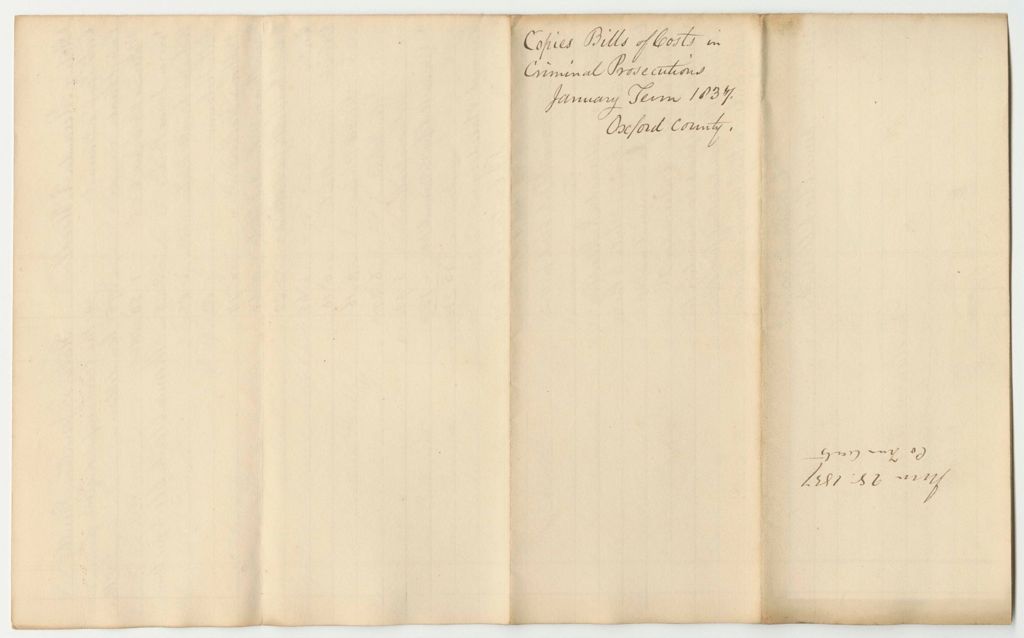 Copies Bills of Costs in
Criminal Prosecutions
January Term 1837.
Oxford County.
28. 1837
Co